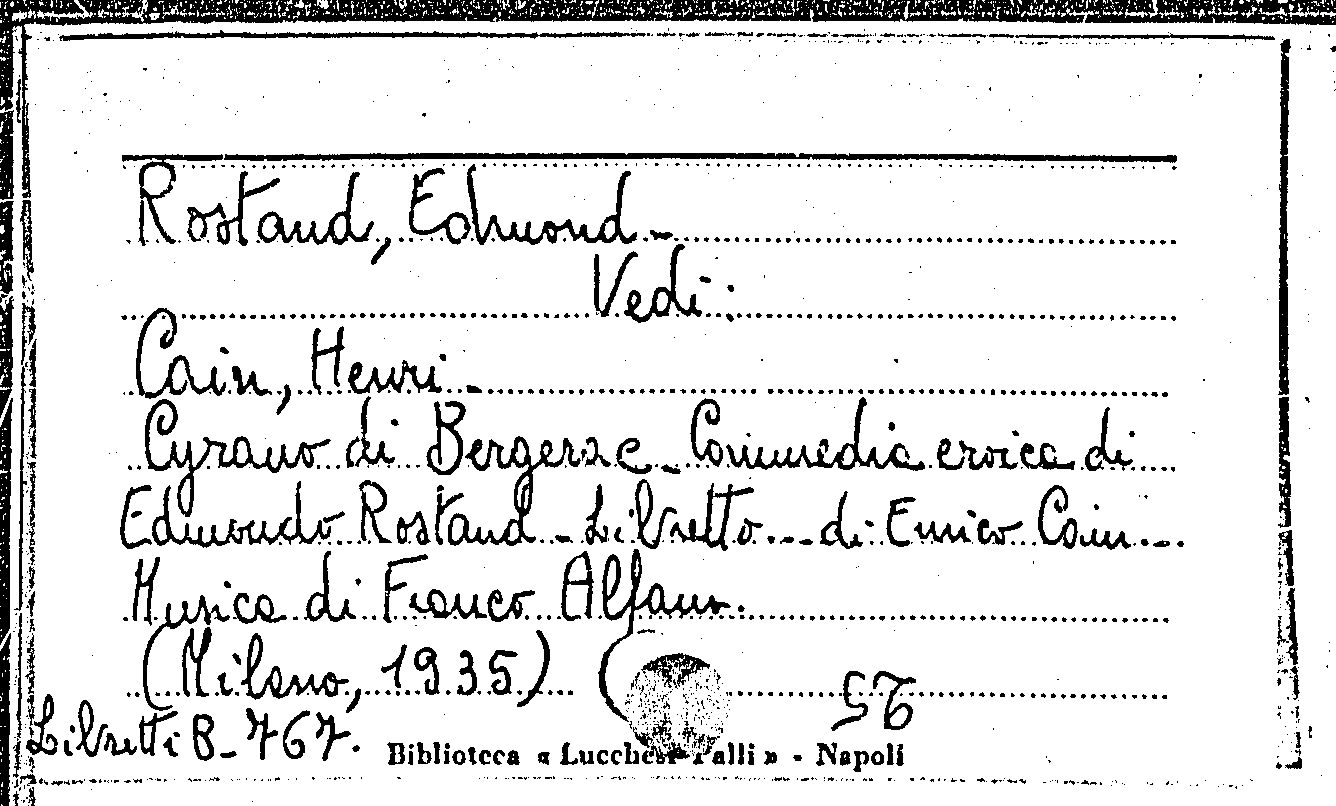 Rostand, Edmond -
Vedi:
Cain, Henri -
Cyrano di Bergerac - Commedia eroica di
Edmondo Rostand - Libretto... di Enrico Cain...
Musica di Franco Alfano.
(Milano, 1935) (
Libretti B - 767.
Biblioteca « Lucchesi Palli » - Napoli